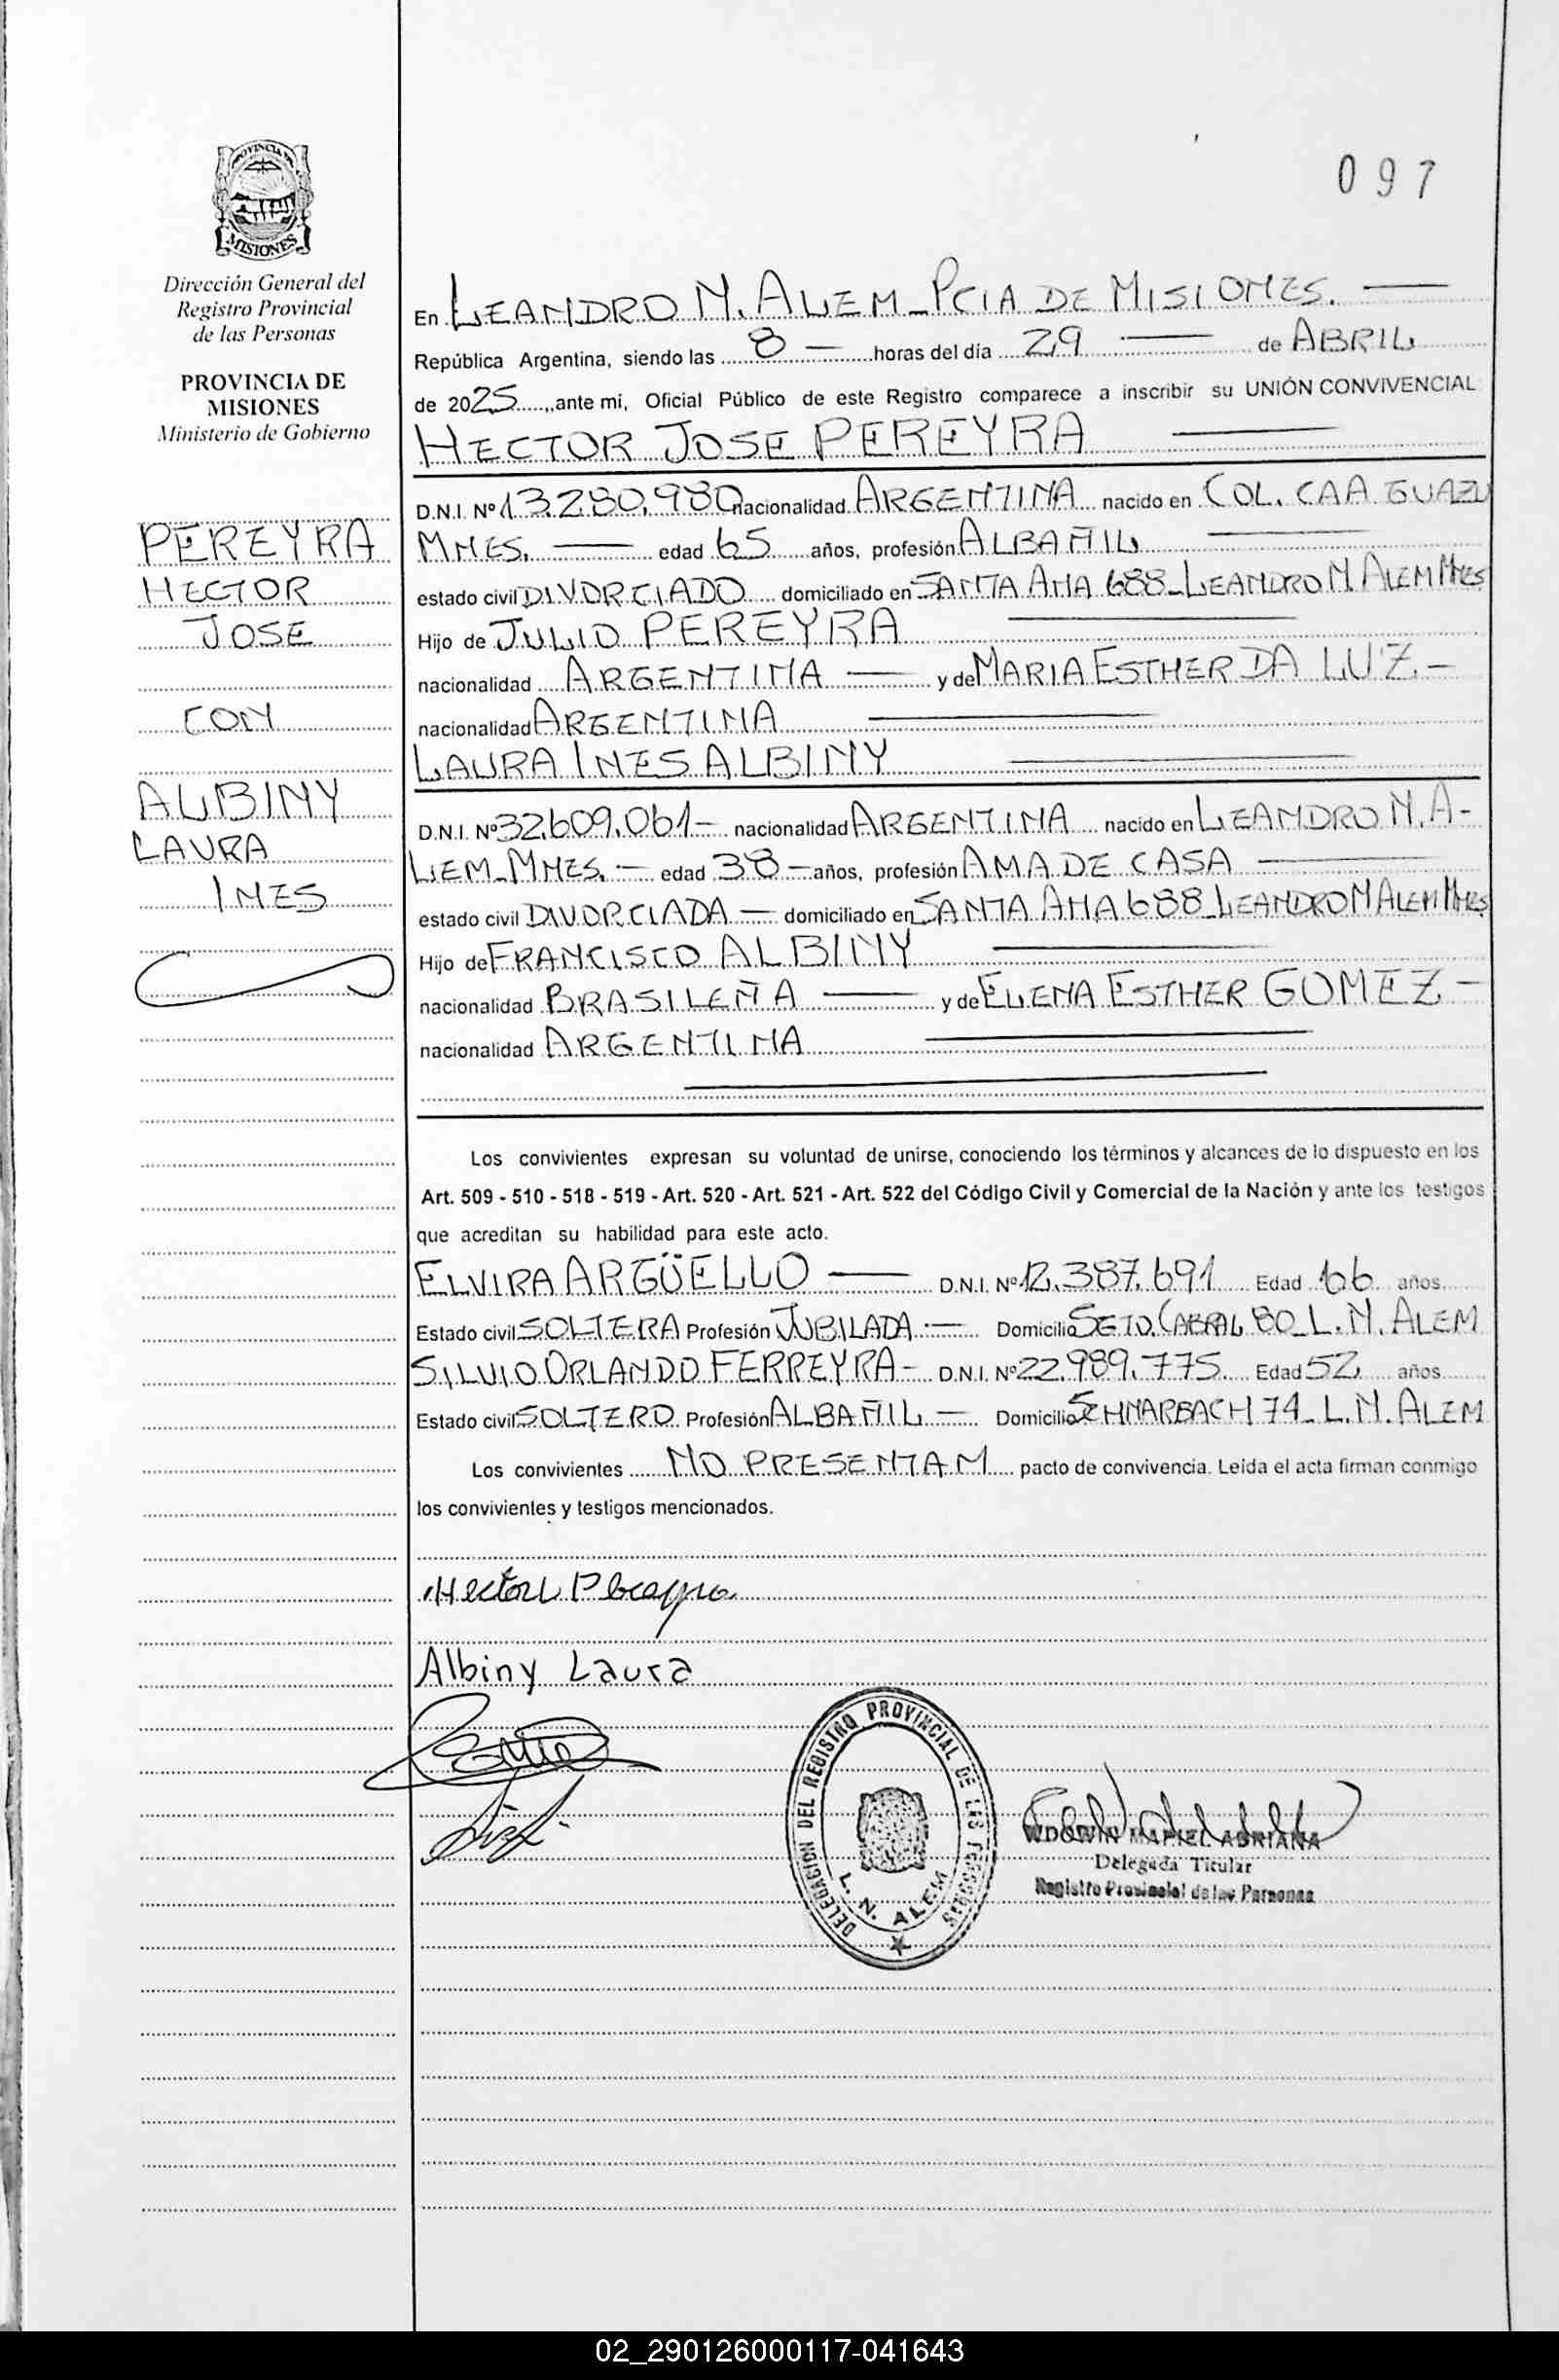 097
PROVINCIA DE
MISIONES
Dirección General del
Registro Provincial
de las Personas
PROVINCIA DE
MISIONES
Ministerio de Gobierno
PEREYRA
HECTOR
JOSE
CON
ALBINY
LAURA
INES
En LEANDRO N. ALEM - PCIA DE MISIONES.
República Argentina, siendo las 8 — horas del día 29 — de ABRIL
de 2025, ante mi, Oficial Público de este Registro comparece a inscribir su UNIÓN CONVIVENCIAL
HECTOR JOSE PEREYRA
D.N.I. Nº 13.280.980 nacionalidad ARGENTINA nacido en COL. CAA GUAZU
MNES. — edad 65 años, profesión ALBAÑIL
estado civil DIVORCIADO domiciliado en SANTA ANA 688 - LEANDRO N. ALEM MNES
Hijo de JULIO PEREYRA
nacionalidad ARGENTINA — y de MARIA ESTHER DA LUZ. -
nacionalidad ARGENTINA
LAURA INES ALBINY
D.N.I. Nº 32.609.061 - nacionalidad ARGENTINA nacido en LEANDRO N. A-
LEM - MNES. - edad 38 - años, profesión AMA DE CASA
estado civil DIVORCIADA — domiciliado en SANTA ANA 688 - LEANDRO N ALEM MNES
Hijo de FRANCISCO ALBINY
nacionalidad BRASILEÑA — y de ELENA ESTHER GOMEZ -
nacionalidad ARGENTINA
Los convivientes expresan su voluntad de unirse, conociendo los términos y alcances de lo dispuesto en los
Art. 509 - 510 - 518 - 519 - Art. 520 - Art. 521 - Art. 522 del Código Civil y Comercial de la Nación y ante los testigos
que acreditan su habilidad para este acto.
ELVIRA ARGÜELLO — D.N.I. Nº 12.387.691 Edad 66 años
Estado civil SOLTERA Profesión JUBILADA. — Domicilio SGTO. CABRAL 80 - L. N. ALEM
SILVIO ORLANDO FERREYRA - D.N.I. Nº 22.989.775 Edad 52 años
Estado civil SOLTERO Profesión ALBAÑIL — Domicilio 74 - L. N. ALEM
Los convivientes NO PRESENTAN pacto de convivencia. Leída el acta firman conmigo
los convivientes y testigos mencionados.
Hector Pereyra
Albiny Laura
DELEGACION DEL REGISTRO PROVINCIAL DE LAS PERSONAS
L. N. ALEM
WDOWIN MARIEL ADRIANA
Delegada Titular
Registro Provincial de las Personas
02_290126000117-041643